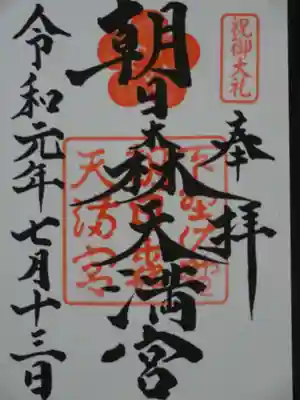 祝御大礼
奉拝
朝日森天満宮
下野佐野
朝日森
天満宮
令和元年七月十三日